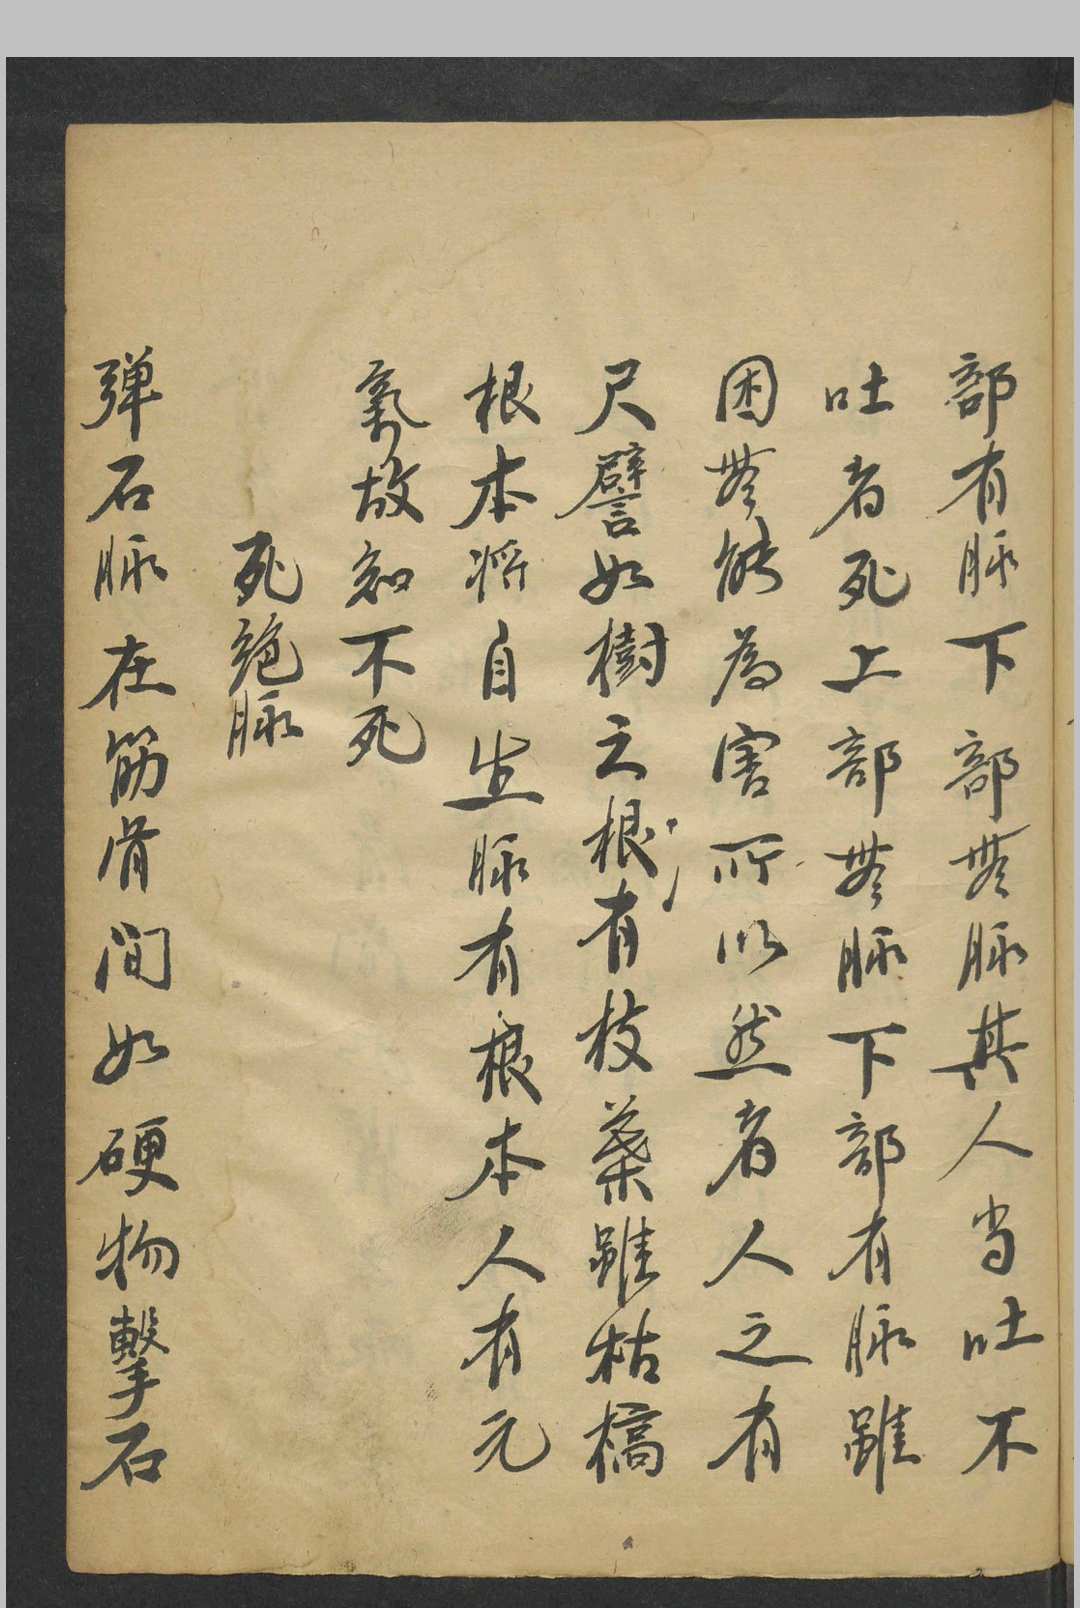 部有脉下部無脉其人当吐不
吐者死上部無脉下部有脉雖
困無能為害所以然者人之有
尺譬如樹之根有枝葉雖枯槁
根本将自生脉有根本人有元
氣故知不死
死絶脉
弾石脉在筋骨间如硬物擊石